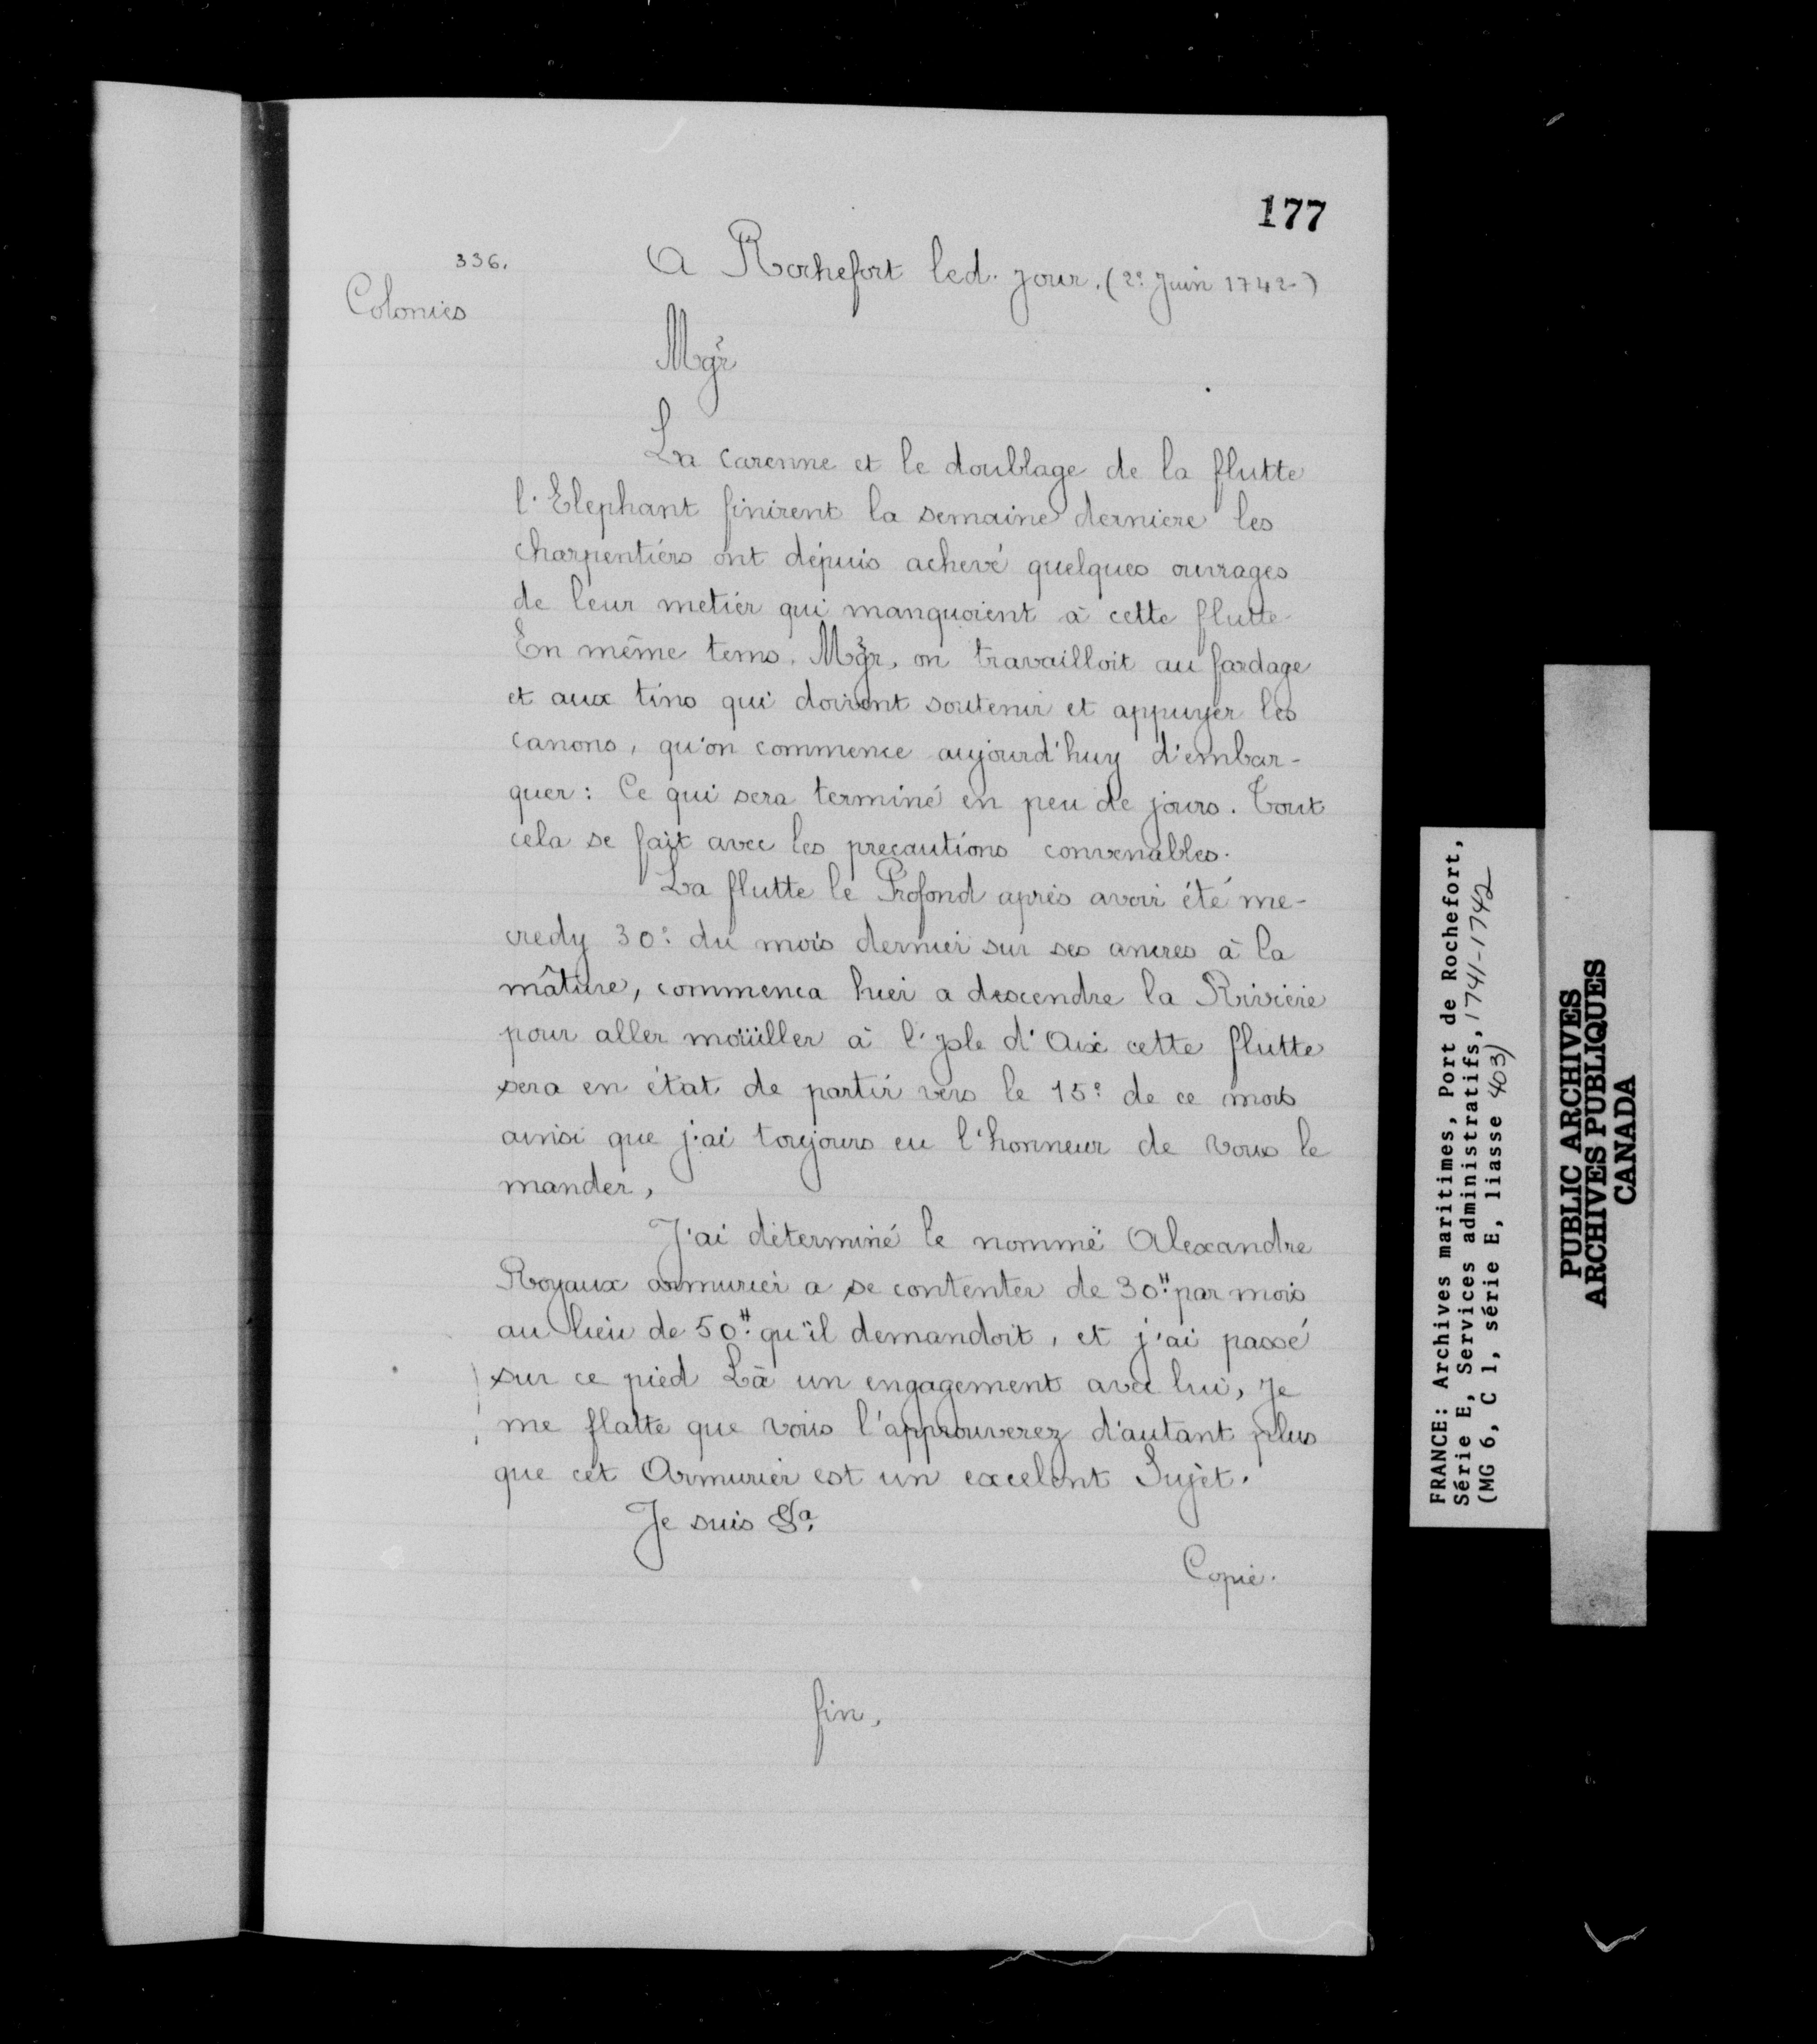 177
336.
Colonies
A Rochefort led. jour. (2e Juin 1742)
Mgr
La carenne et le doublage de la flutte
l'Elephant finirent la semaine derniere les
charpentiers ont dépuis achevé quelques ouvrages
de leur metier qui manquoient à cette flutte.
En même tems, Mgr, on travailloit au fardage
et aux tins qui doivent soutenir et appuyer les
canons, qu'on commence aujourd'huy d'embar-
quer: Ce qui sera terminé en peu de jours. Tout
cela se fait avec les precautions convenables.
La flutte le Profond aprés avoir été me-
credy 30e du mois dernier sur ses ancres à la
mâture, commenca hier a descendre la Riviere
pour aller moüiller à l'Jsle d'Aix cette flutte
sera en état de partir vers le 15e de ce mois
ainsi que j'ai toujours eu l'honneur de vous le
mander,
J'ai déterminé le nommé Alexandre
Royaux armurier a se contenter de 30# par mois
au lieu de 50# qu'il demandoit, et j'ai passé
sur ce pied Là un engagement avec lui, Je
me flatte que vous l'approuverez d'autant plus
que cet Armurier est un excelent Sujet.
Je suis &a.
Copie.
fin.
FRANCE: Archives maritimes, Port de Rochefort,
Série E, Services administratifs, 1741-1742
(MG 6, C 1, série E, liasse 403)
PUBLIC ARCHIVES
ARCHIVES PUBLIQUES
CANADA